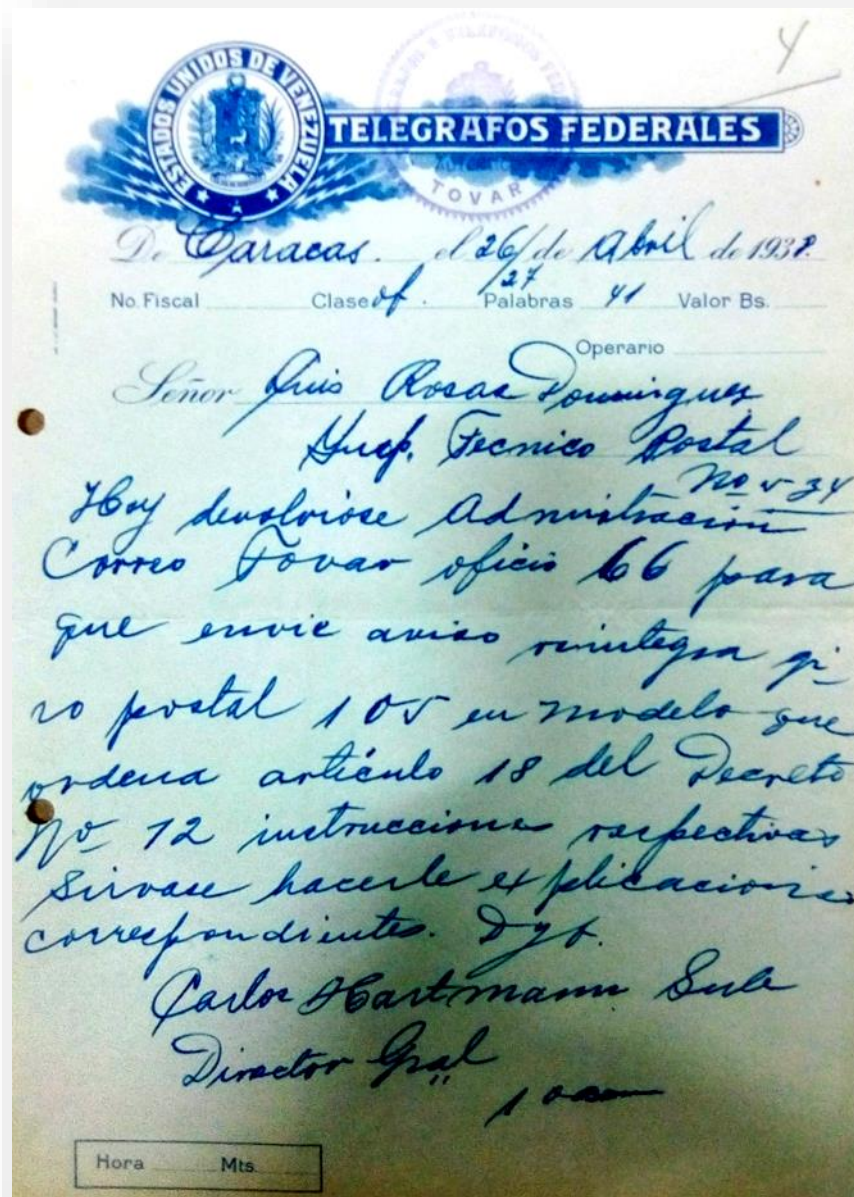 4
ESTADOS UNIDOS DE VENEZUELA
TELEGRAFOS FEDERALES
TOVAR
De Caracas. el 26/27 de Abril de 1938.
No. Fiscal Clase of. Palabras 41 Valor Bs.
Operario
Señor Luis Rosas Domingues
Insp. Tecnico Postal
No
Hoy devolviose Admistración
Correo Tovar oficio 66 para
que envie aviso reintegra gi-
ro postal 105 en modelo que
ordena artículo 18 del Decreto
Nº 12 instrucciones respectivas
Sirvase hacerle explicaciones
correspondientes. D y F.
Carlos Hartmann
Director Gral
Hora Mts.